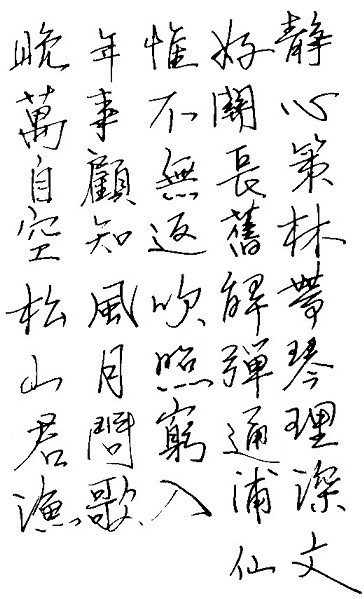 晚年惟好靜
萬事不關心
自顧無長策
空知返舊林
松風吹解帶
山月照彈琴
君問窮通理
漁歌入浦深
仙文